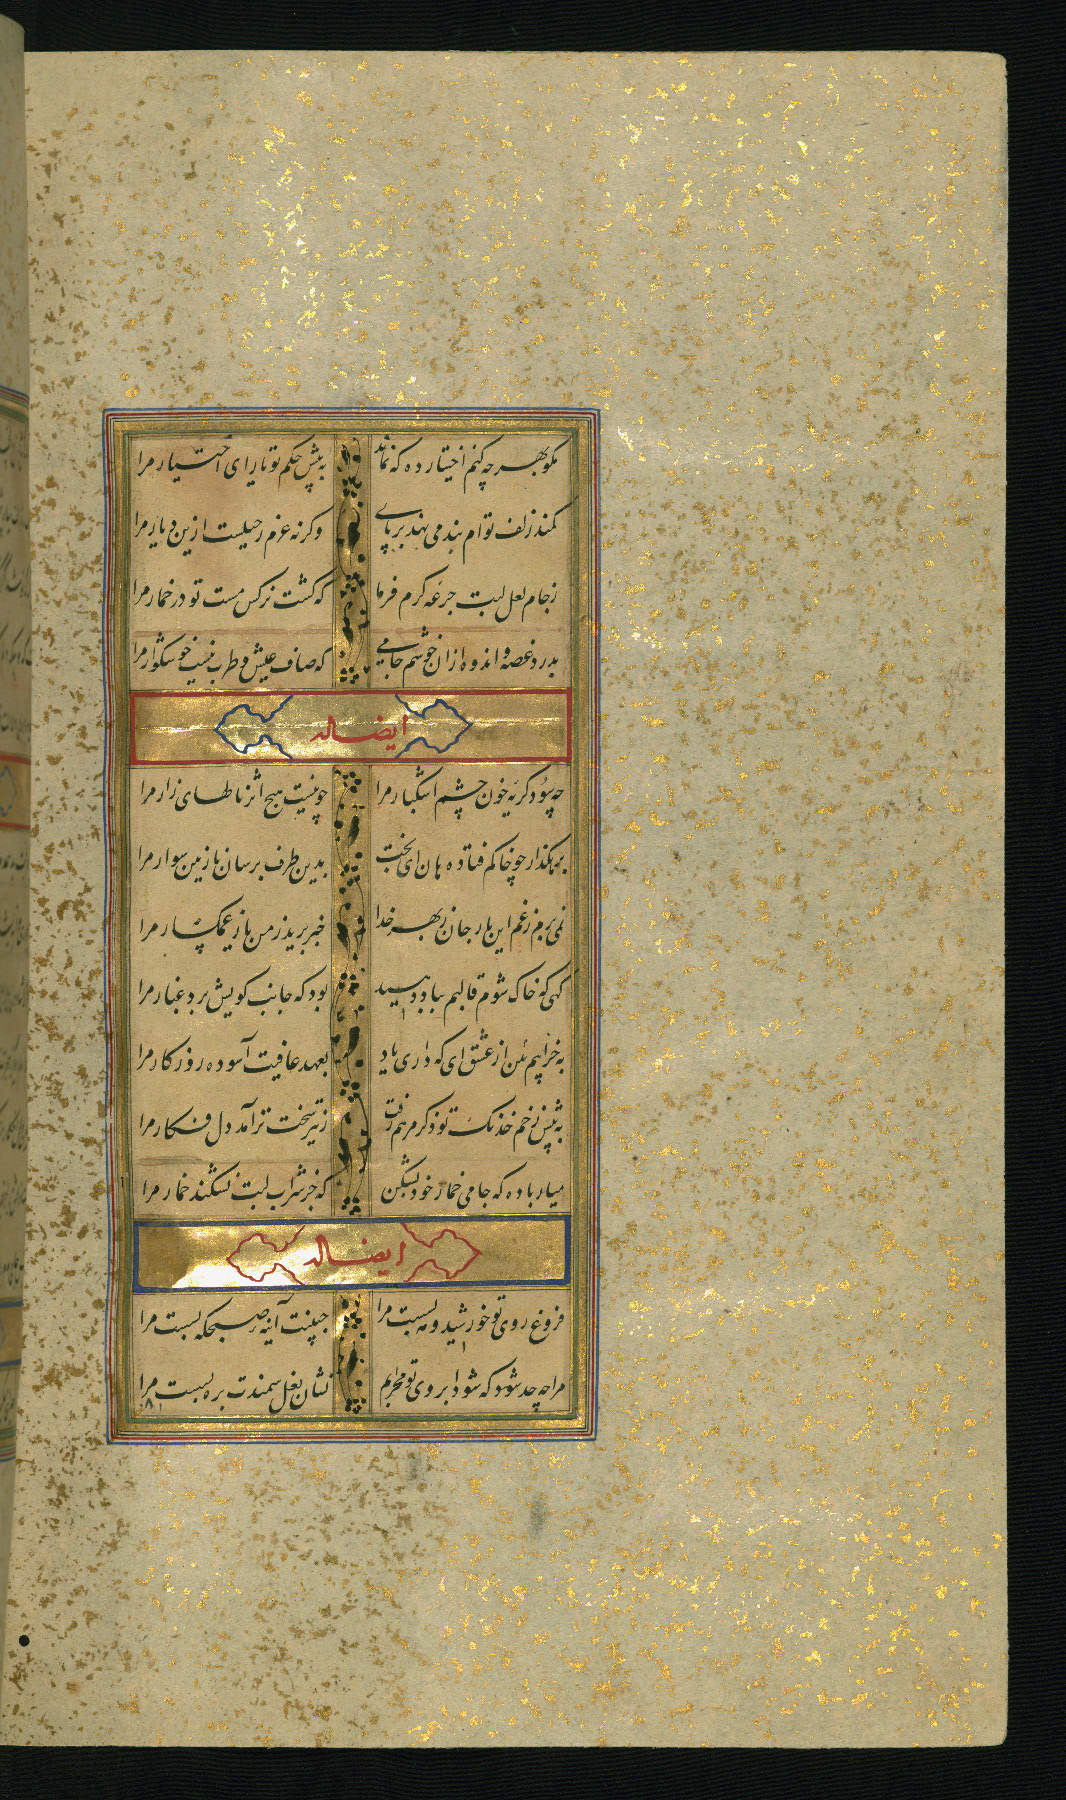 مکو بهر چه کنم اختیار ده که نماند به پیش حکم تو یارای اختیار مرا
کمند زلف توام بند می نهد بر پای وکرنه عزم رحیلست ازین دیار مرا
ز جام لعل لبت جرعه کرم فرما که کشت نرکس مست تو در خمار مرا
بدرد غصه و اندوه ازان خوشم جامی که صاف عیش و طرب نیست خوشکوار مرا
ایضا له
چه سود کریه خون چشم اشکبار مرا چو نیست هیچ اثر نالهای زار مرا
فتاده هان ای بخت بدین طرف برسان نازنین سوار مرا
نمی برم ز غم این بار جان بهر خدا خبر برید ز من یار غمکسار مرا
کهی که خاک شوم قالبم بباد دهید بود که جانب کویش برد غبار مرا
به خرابیم من از عشق ای که داری یاد بعهد عافیت آسوده روزکار مرا
به پیش زخم خدنک تو ذکر مرهم رفت ز تیر سخت تر آمد دل فکار مرا
میار باده که جامی خمار خود بشکن که جز شراب لبت نشکند خمار مرا
ایضا له
فروغ روی تو خورشید و مه بسست مرا جبینت آینه صبحکه بسست مرا
مرا چه حد شود که شود ابروی تو محرابم نشان نعل سمندت بره بسست مرا
۸۱